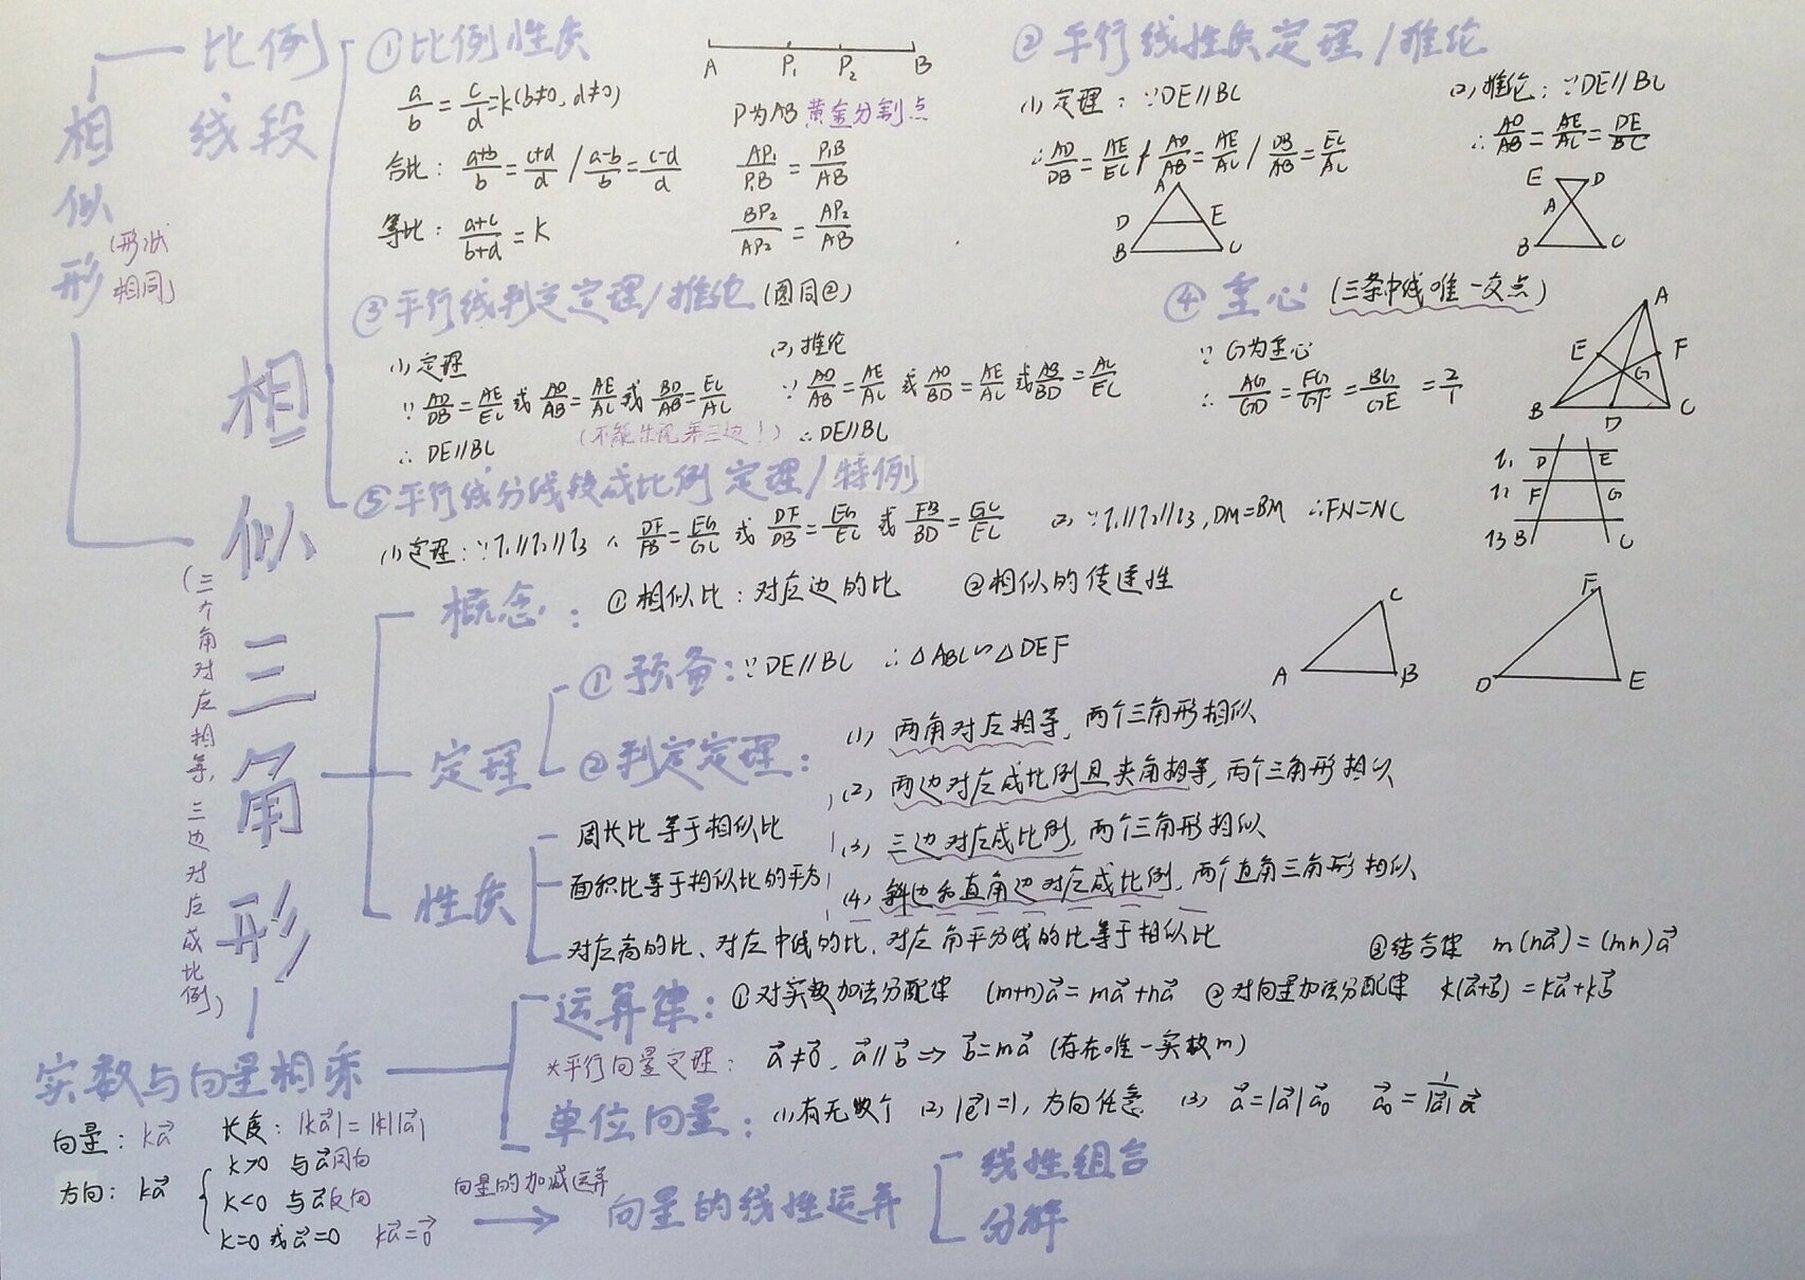 相似形
(形状相同)
比例线段
①比例性质
a/b = c/d = k (b≠0, d≠0)
合比: (a+b)/b = (c+d)/d / (a-b)/b = (c-d)/d
等比: (a+c)/(b+d) = k
A P₁ P₂ B
P为AB黄金分割点
AP₁/P₁B = P₁B/AB
BP₂/AP₂ = AP₂/AB
②平行线性质定理/推论
(1) 定理: ∵DE//BC
∴AD/DB = AE/EC / AD/AB = AE/AC / DB/AB = EC/AC
A
D E
B C
(2) 推论: ∵DE//BC
∴AD/AB = AE/AC = DE/BC
E D
A
B C
③平行线判定定理/推论(图同②)
(1) 定理
∵AD/DB = AE/EC 或 AD/AB = AE/AC 或 BD/AB = EC/AC
∴DE//BC
(2) 推论
∵AD/AB = AE/AC 或 AD/BD = AE/AC 或 AB/BD = AC/EC
(不能出现第三边!) ∴DE//BC
④重心 (三条中线唯一交点)
∵G为重心
∴AG/GD = FG/GF = BG/GE = 2/1
A
E F
G
B D C
⑤平行线分线段成比例定理/特例
(1) 定理: ∵l₁//l₂//l₃ ∴DF/FB = EG/GC 或 DF/DB = EG/EC 或 FB/BD = GC/EC
(2) ∵l₁//l₂//l₃, DM=BM ∴FN=NC
l₁ D E
l₂ F G
l₃ B C
相似三角形
(三个角对应相等,三边对应成比例)
概念: ①相似比: 对应边的比 ②相似的传递性
定理
①预备: ∵DE//BC ∴△ABC∽△DEF
C
A B
F
D E
②判定定理:
(1) 两角对应相等, 两个三角形相似
(2) 两边对应成比例且夹角相等, 两个三角形相似
(3) 三边对应成比例, 两个三角形相似
(4) 斜边和直角边对应成比例, 两个直角三角形相似
性质
周长比等于相似比
面积比等于相似比的平方
对应高的比、对应中线的比、对应角平分线的比等于相似比
实数与向量相乘
运算律: ①对实数加法分配律 (m+n)a⃗ = ma⃗+na⃗ ②对向量加法分配律 k(a⃗+b⃗) = ka⃗+kb⃗
③结合律 m(na⃗) = (mn)a⃗
*平行向量定理: a⃗≠0⃗, a⃗//b⃗ => b⃗=ma⃗ (存在唯一实数m)
单位向量: (1) 有无数个 (2) |e⃗|=1, 方向任意 (3) a⃗=|a⃗|a⃗₀ a⃗₀ = 1/|a⃗| a⃗
向量: ka⃗ 长度: |ka⃗| = |k||a⃗|
方向: ka⃗
k>0 与a⃗同向
k<0 与a⃗反向
k=0 或 a⃗=0 ka⃗=0⃗
向量的加减运算
向量的线性运算
线性组合
分解